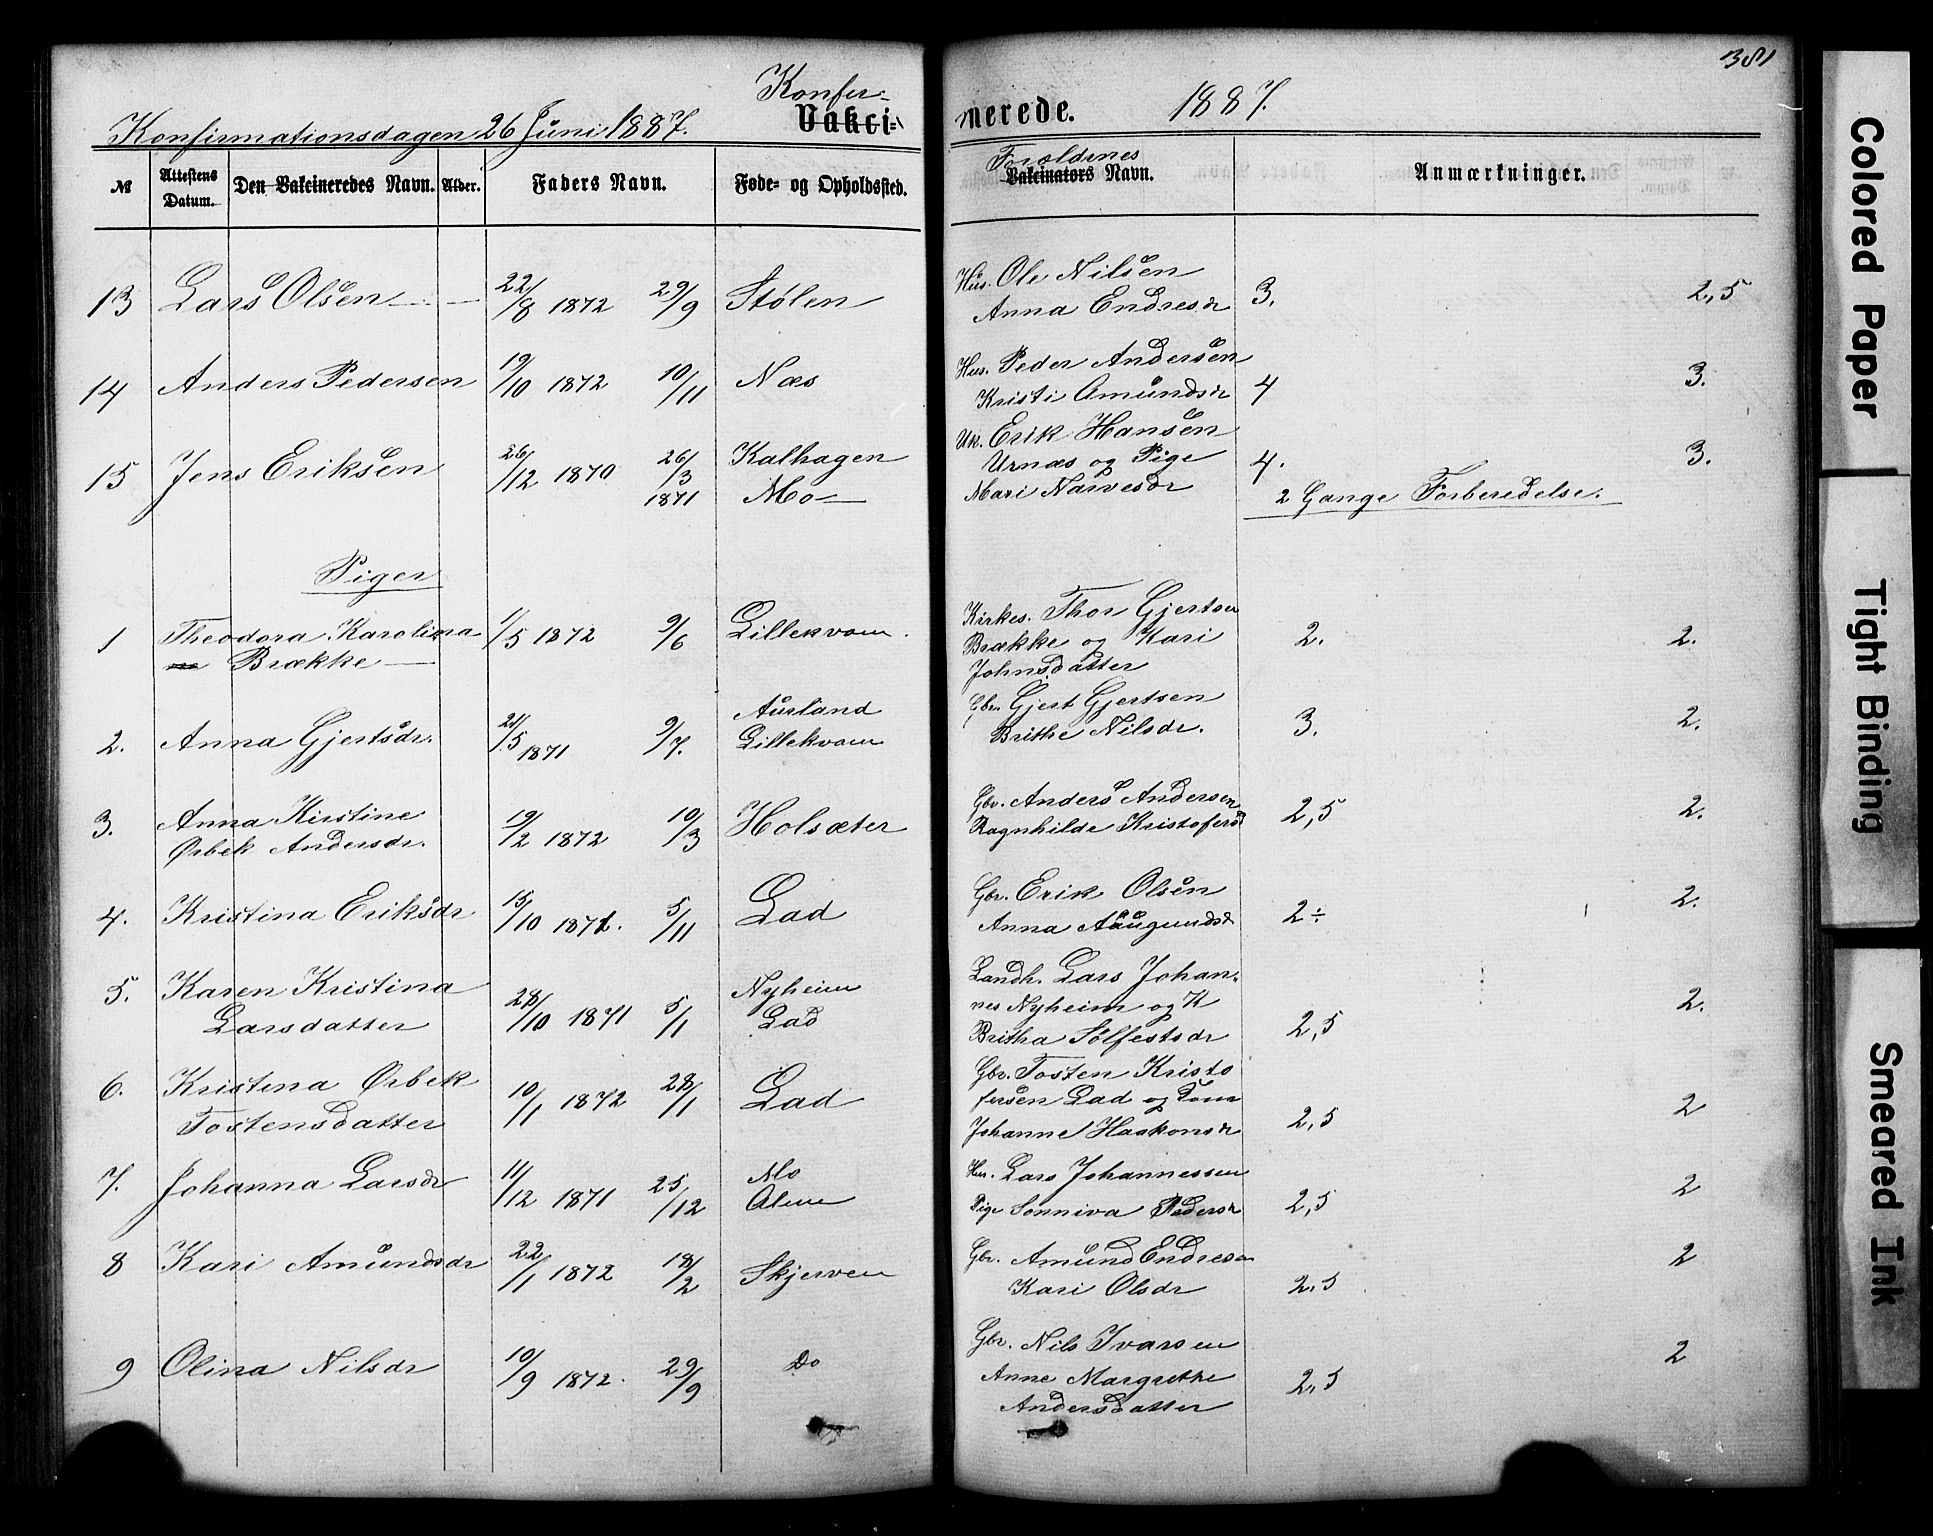 381
Konfir-
Konfirmationsdagen 26 Juni 1887. Vakci- nerede. 1887.
№ Attestens Datum. Den Vakcineredes Navn. Alder. Faders Navn. Føde- og Opholdssted. Forældenes Vakcinators Navn. Anmærkninger.
13 Lars Olsen 22/8 1872 29/9 Stølen Hus. Ole Nilsen
Anna Endresdr 3. 2,5
14 Anders Pedersen 19/10 1872 10/11 Næs Hus. Peder Andersen
Kristi Amundsdr 4 3.
15 Jens Eriksen 26/12 1870 26/3 1871 Kalhagen
Mo Un. Erik Hansen
Urnæs og Pige
Mari Narvesdr 4. 3.
2 Gange Forberedelse.
Piger
1 Theodora Karolina
Brække 1/5 1872 9/6 Lillekvam. Kirkes. Thor Gjertsen
Brække og Kari
Johnsdatter 2. 2.
2. Anna Gjertsdr. 21/5 1871 9/7. Aurland
Lillekvam Gbr. Gjert Gjertsen
Brithe Nilsdr. 3. 2.
3. Anna Kirstine
Ørbek Andersdr. 19/2 1872 10/3 Holsæter Gbr. Anders Andersen
Ragnhilde Kristofersd 2,5 2.
4. Kristina Eriksdr 15/10 1871. 5/11 Lad Gbr. Erik Olsen
Anna Aaugundsd 2÷ 2.
5. Karen Kristina
Larsdatter 28/10 1871 5/1 Nyheim
Lad Landh. Lars Johan-
nes Nyheim og K
Britha Sølfestsdr 2,5 2.
6. Kristina Ørbek
Tostensdatter 10/1 1872 28/1 Lad Gbr. Tosten Kristo
fersen Lad og
Johanne Haakonsdr 2,5 2
7. Johanna Larsdr 11/12 1871 25/12 Mo
Alme Hus. Lars Johannessen
Pige Sønniva Pedersdr 2,5 2
8 Kari Amundsdr 22/1 1872 18/2 Skjerven Gbr. Amund Endresen
Kari Olsdr 2,5 2
9 Olina Nilsdr 10/9 1872. 29/9 Do Gbr. Nils Ivarsen
Anne Margrethe
Andersdatter 2,5 2
Colored Paper
Tight Binding
Smeared Ink